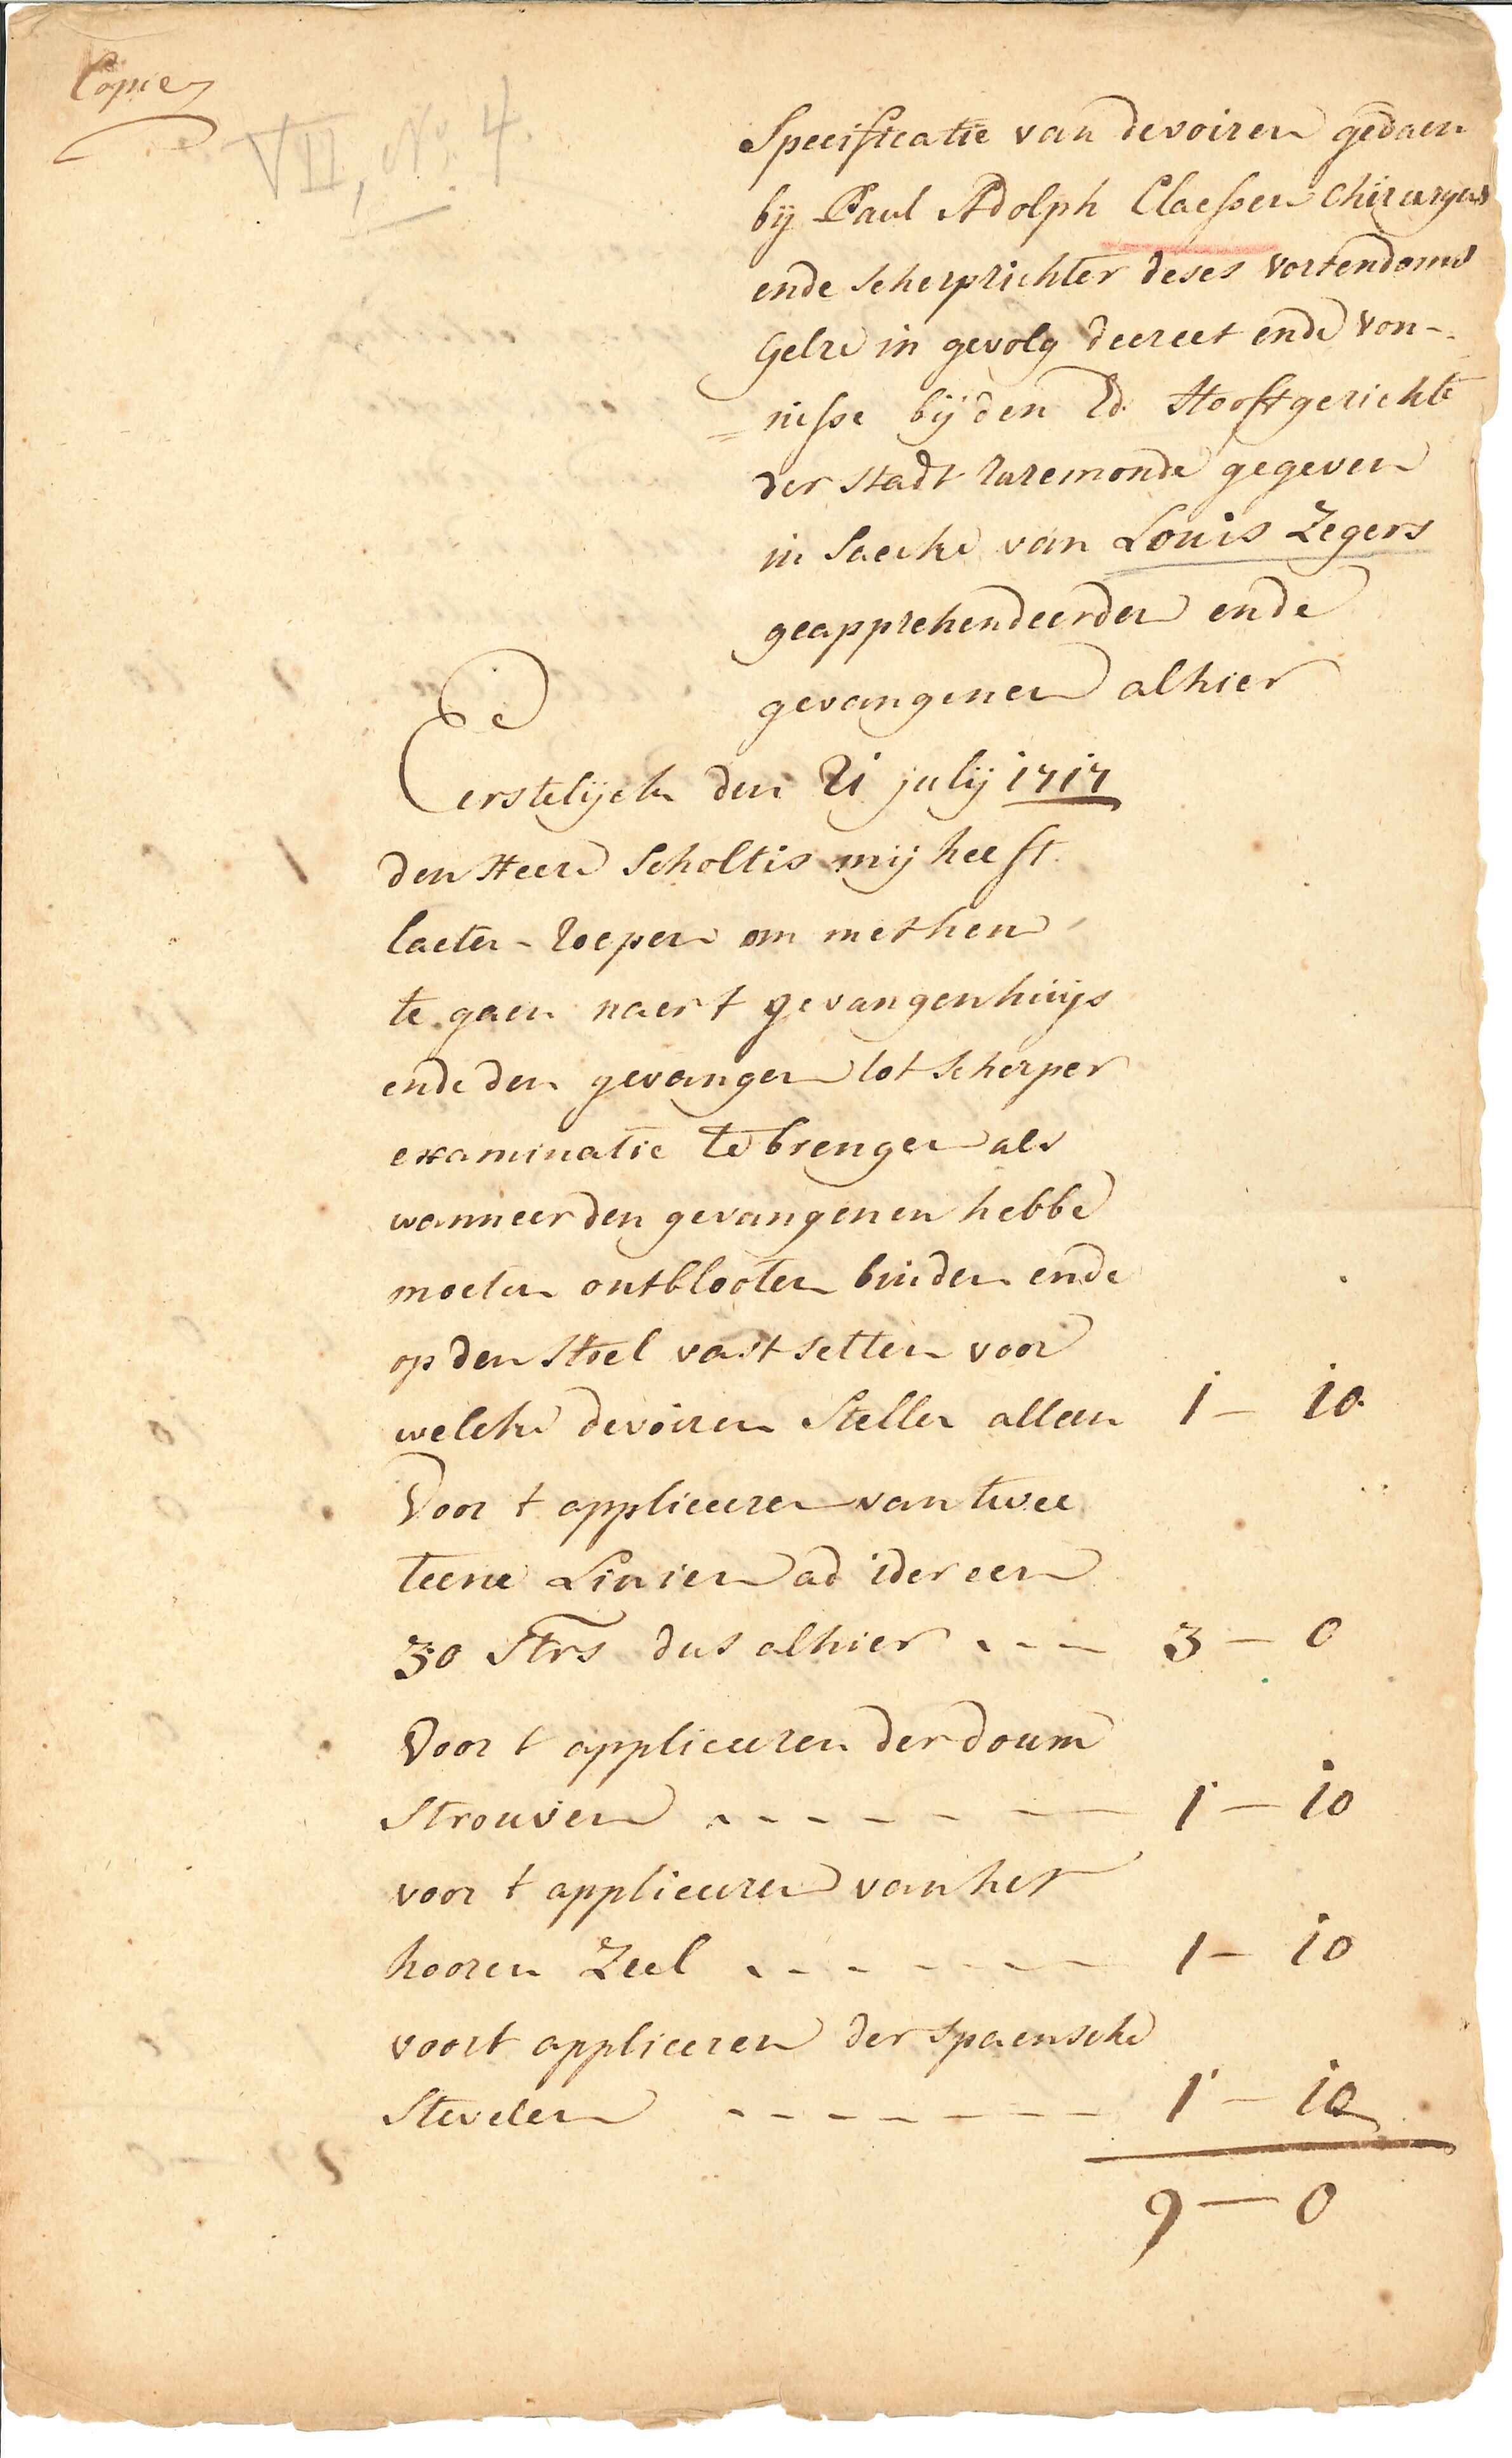 Copie
VII, No. 4.
Specificatie van devoiren gedaen
bij Paul Adolph Claessen Chirurgus
ende scherprichter deses vorstendoms
Gelre in gevolg decreet ende von-
nisse bij den Ed. Hooftgerichte
der stadt ruremonde gegeven
in saecke van Louis Zegers
geapprehendeerden ende
gevangenen alhier
Eerstelijck den 21 julij 1717
den Heere Scholtis mij heeft
laeten roepen om met hen
te gaen naer t gevangenhuijs
ende den gevangen tot scherper
examinatie te brengen als
wanneer den gevangenen hebbe
moeten ontblooten binden ende
op den stoel vast setten voor
welcke devoiren stelle alleen 1 - 10
Voor t appliceren van twee
teene Linien ad ider een
30 strs dus alhier - - - 3 - 0
Voor t appliceeren der doum
strouven - - - - - - 1 - 10
voor t appliceren van het
hooren Zeel - - - - - - 1 - 10
voor t appliceren der spaensche
stevelen - - - - - - - 1 - 10
9 - 0